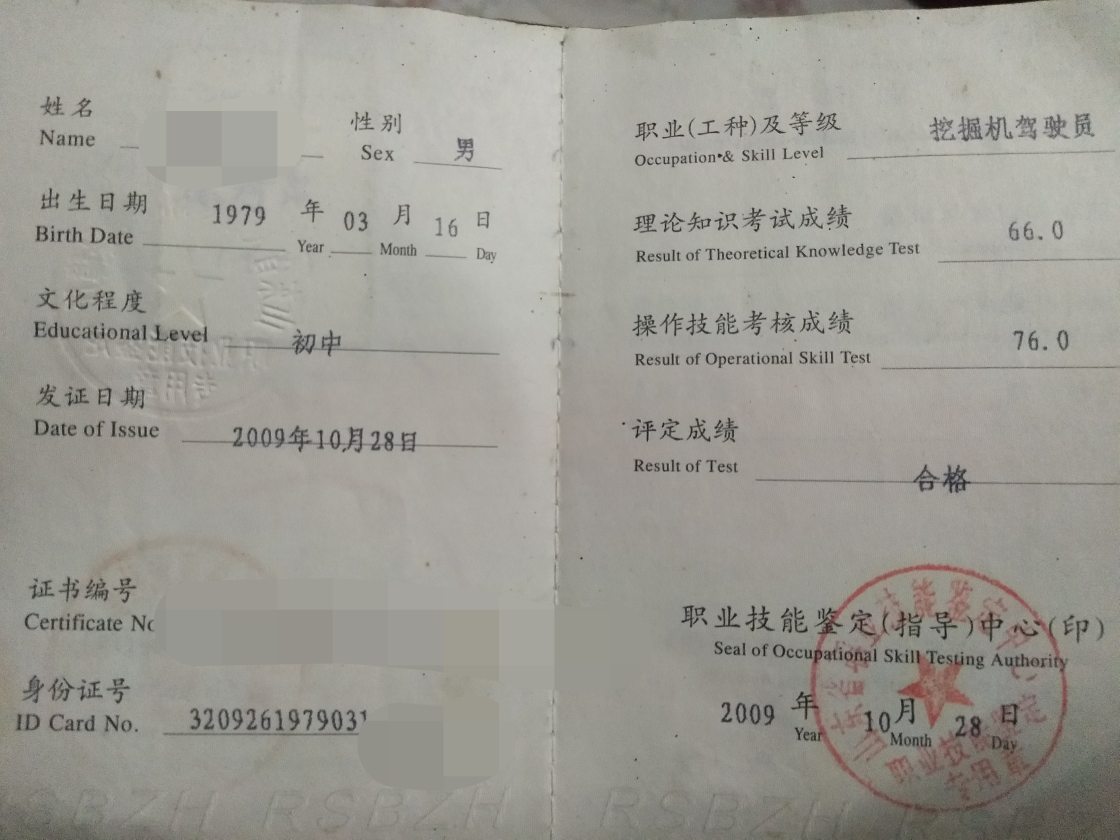 姓名
Name
性别
Sex
男
出生日期
Birth Date
1979 年 03 月 16 日
Year Month Day
文化程度
Educational Level
初中
发证日期
Date of Issue
2009年10月28日
证书编号
Certificate No
身份证号
ID Card No.
3209261979031
RSBZH RSBZH
职业(工种)及等级
Occupation & Skill Level
挖掘机驾驶员
理论知识考试成绩
Result of Theoretical Knowledge Test
66.0
操作技能考核成绩
Result of Operational Skill Test
76.0
评定成绩
Result of Test
合格
职业技能鉴定(指导)中心(印)
Seal of Occupational Skill Testing Authority
2009 年 10 月 28 日
Year Month Day
职业技能鉴定
专用章